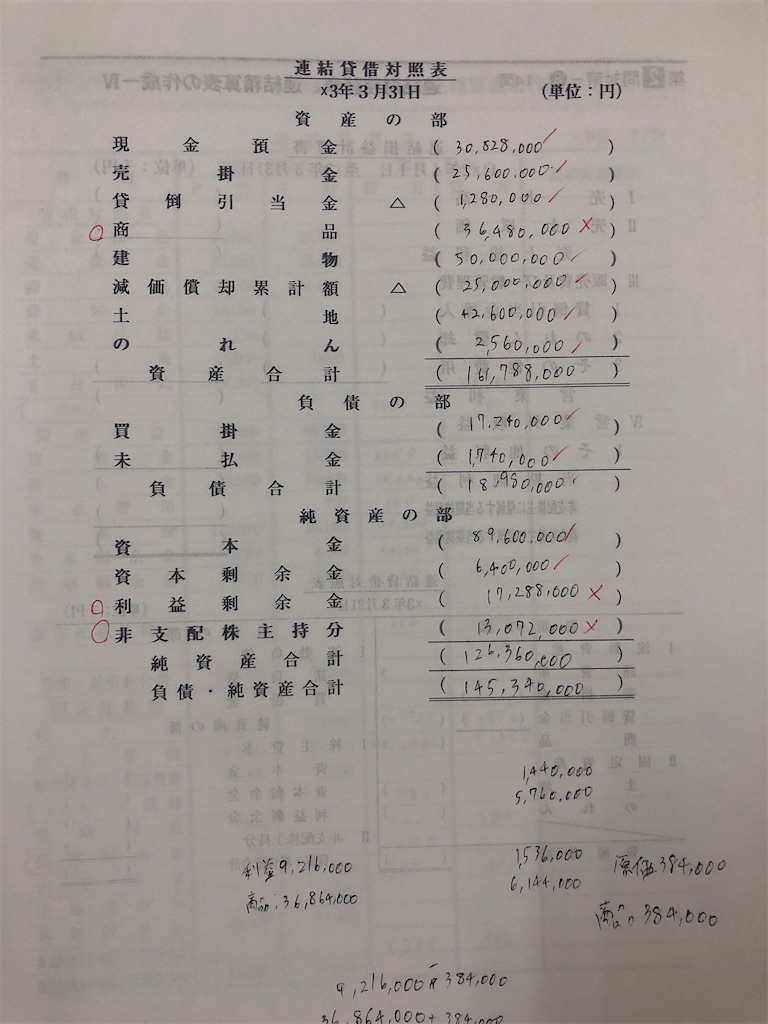 連結貸借対照表
×3年3月31日 (単位:円)
資産の部
現金預金 ( 30,828,000 )
売掛金 ( 25,600,000 )
貸倒引当金 △ ( 1,280,000 )
商品 ( 36,480,000 × )
建物 ( 50,000,000 )
減価償却累計額 △ ( 25,000,000 )
土地 ( 42,600,000 )
のれん ( 2,560,000 )
資産合計 ( 161,788,000 )
負債の部
買掛金 ( 17,240,000 )
未払金 ( 1,740,000 )
負債合計 ( 18,980,000 )
純資産の部
資本金 ( 89,600,000 )
資本剰余金 ( 6,400,000 )
利益剰余金 ( 17,288,000 × )
非支配株主持分 ( 13,072,000 × )
純資産合計 ( 126,360,000 )
負債・純資産合計 ( 145,340,000 )
1,440,000
5,760,000
利益 9,216,000
商品:36,864,000
1,536,000
6,144,000
原価 384,000
商品 384,000
9,216,000 384,000
36,864,000+384,000